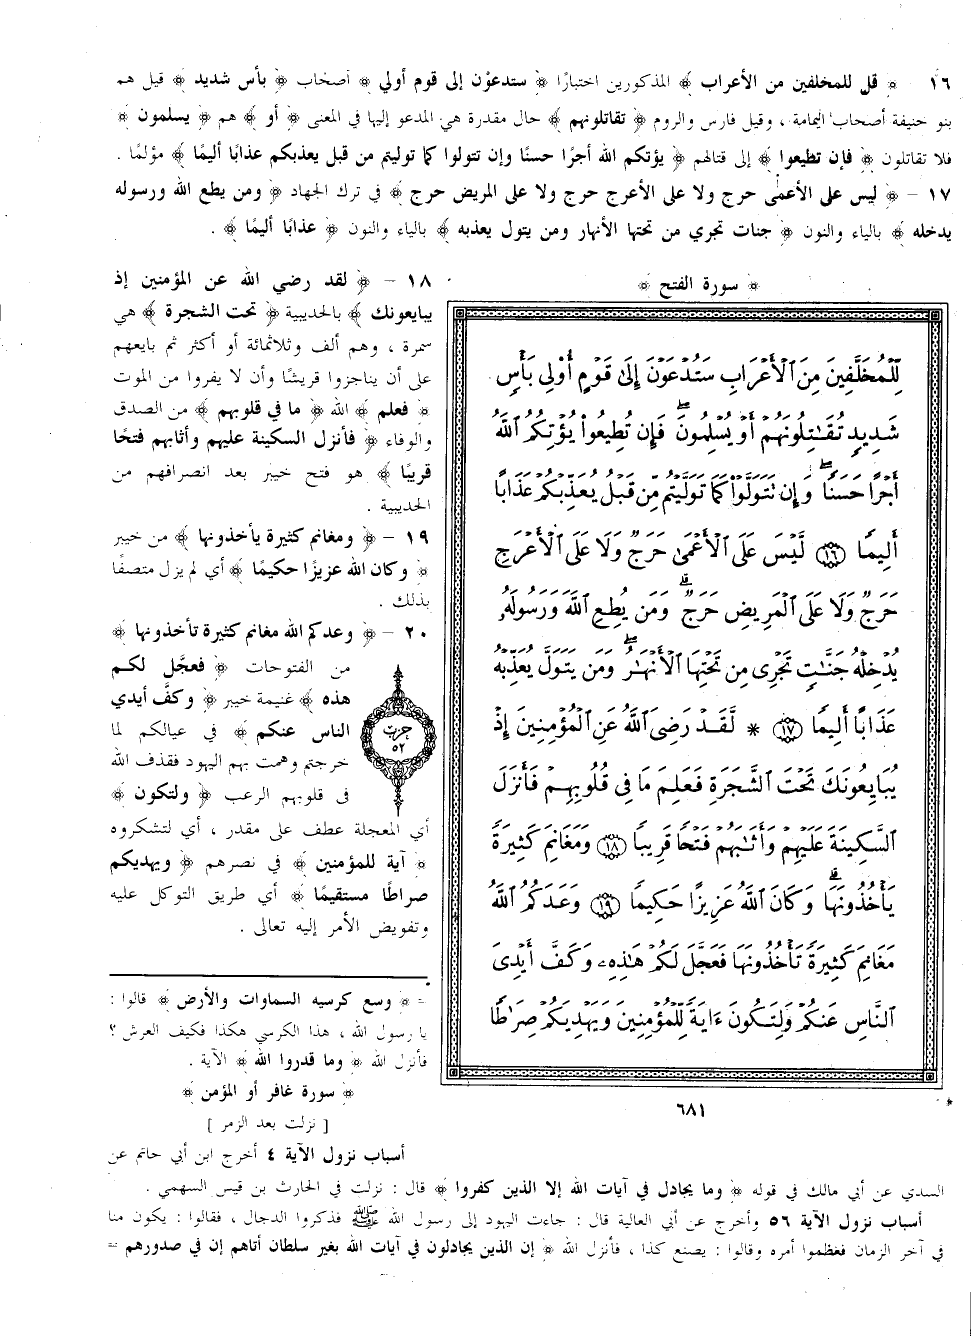 ١٦ – ﴿ قل للمخلفين من الأعراب ﴾ المذكورين اختبارًا ﴿ ستدعوْن إلى قوم أولي ﴾ أصحاب ﴿ بأس شديد ﴾ قيل هم
بنو حنيفة أصحاب اليمامة ، وقيل فارس والروم ﴿ تقاتلونهم ﴾ حال مقدرة هي المدعو إليها في المعنى ﴿ أو ﴾ هم ﴿ يسلمون ﴾
فلا تقاتلون ﴿ فإن تطيعوا ﴾ إلى قتالهم ﴿ يؤتكم الله أجرًا حسنًا وإن تتولوا كما توليتم من قبل يعذبكم عذابًا أليمًا ﴾ مؤلمًا .
١٧ – ﴿ ليس على الأعمى حرج ولا على الأعرج حرج ولا على المريض حرج ﴾ في ترك الجهاد ﴿ ومن يطع الله ورسوله
يدخله ﴾ بالياء والنون ﴿ جنات تجري من تحتها الأنهار ومن يتول يعذبه ﴾ بالياء والنون ﴿ عذابًا أليمًا ﴾ .
﴿ سورة الفتح ﴾
لِّلْمُخَلَّفِينَ مِنَ ٱلْأَعْرَابِ سَتُدْعَوْنَ إِلَىٰ قَوْمٍ أُوْلِي بَأْسٍ
شَدِيدٍ تُقَٰتِلُونَهُمْ أَوْ يُسْلِمُونَ ۖ فَإِن تُطِيعُواْ يُؤْتِكُمُ ٱللَّهُ
أَجْرًا حَسَنًا ۖ وَإِن تَتَوَلَّوْاْ كَمَا تَوَلَّيْتُم مِّن قَبْلُ يُعَذِّبْكُمْ عَذَابًا
أَلِيمًا ١٦ لَّيْسَ عَلَى ٱلْأَعْمَىٰ حَرَجٌ وَلَا عَلَى ٱلْأَعْرَجِ
حَرَجٌ وَلَا عَلَى ٱلْمَرِيضِ حَرَجٌ ۗ وَمَن يُطِعِ ٱللَّهَ وَرَسُولَهُۥ
يُدْخِلْهُ جَنَّٰتٍ تَجْرِى مِن تَحْتِهَا ٱلْأَنْهَٰرُ ۖ وَمَن يَتَوَلَّ يُعَذِّبْهُ
عَذَابًا أَلِيمًا ١٧ * لَّقَدْ رَضِىَ ٱللَّهُ عَنِ ٱلْمُؤْمِنِينَ إِذْ
يُبَايِعُونَكَ تَحْتَ ٱلشَّجَرَةِ فَعَلِمَ مَا فِى قُلُوبِهِمْ فَأَنزَلَ
ٱلسَّكِينَةَ عَلَيْهِمْ وَأَثَٰبَهُمْ فَتْحًا قَرِيبًا ١٨ وَمَغَانِمَ كَثِيرَةً
يَأْخُذُونَهَا ۗ وَكَانَ ٱللَّهُ عَزِيزًا حَكِيمًا ١٩ وَعَدَكُمُ ٱللَّهُ
مَغَانِمَ كَثِيرَةً تَأْخُذُونَهَا فَعَجَّلَ لَكُمْ هَٰذِهِۦ وَكَفَّ أَيْدِىَ
ٱلنَّاسِ عَنكُمْ وَلِتَكُونَ ءَايَةً لِّلْمُؤْمِنِينَ وَيَهْدِيَكُمْ صِرَٰطًا
٦٨١
١٨ – ﴿ لقد رضي الله عن المؤمنين إذ
يبايعونك ﴾ بالحديبية ﴿ تحت الشجرة ﴾ هي
سمرة ، وهم ألف وثلاثمائة أو أكثر ثم بايعهم
على أن يناجزوا قريشًا وأن لا يفروا من الموت
﴿ فعلم ﴾ الله ﴿ ما في قلوبهم ﴾ من الصدق
والوفاء ﴿ فأنزل السكينة عليهم وأثابهم فتحًا
قريبًا ﴾ هو فتح خيبر بعد انصرافهم من
الحديبية .
١٩ – ﴿ ومغانم كثيرة يأخذونها ﴾ من خيبر
﴿ وكان الله عزيزًا حكيمًا ﴾ أي لم يزل متصفًا
بذلك .
٢٠ – ﴿ وعدكم الله مغانم كثيرة تأخذونها ﴾
من الفتوحات ﴿ فعجَّل لكم
هذه ﴾ غنيمة خيبر ﴿ وكفَّ أيدي
الناس عنكم ﴾ في عيالكم لما
خرجتم وهمت بهم اليهود فقذف الله
في قلوبهم الرعب ﴿ ولتكون ﴾
أي المعجلة عطف على مقدر ، أي لتشكروه
﴿ آية للمؤمنين ﴾ في نصرهم ﴿ ويهديكم
صراطًا مستقيمًا ﴾ أي طريق التوكل عليه
وتفويض الأمر إليه تعالى .
حزب
٥٢
= ﴿ وسع كرسيه السماوات والأرض ﴾ قالوا :
يا رسول الله ، هذا الكرسي هكذا فكيف العرش ؟
فأنزل الله ﴿ وما قدروا الله ﴾ الآية .
﴿ سورة غافر أو المؤمن ﴾
[ نزلت بعد الزمر ]
أسباب نزول الآية ٤ أخرج ابن أبي حاتم عن
السدي عن أبي مالك في قوله ﴿ وما يجادل في آيات الله إلا الذين كفروا ﴾ قال : نزلت في الحارث بن قيس السهمي .
أسباب نزول الآية ٥٦ وأخرج عن أبي العالية قال : جاءت اليهود إلى رسول الله ﷺ فذكروا الدجال ، فقالوا : يكون منا
في آخر الزمان فعظموا أمره وقالوا : يصنع كذا ، فأنزل الله ﴿ إن الذين يجادلون في آيات الله بغير سلطان أتاهم إن في صدورهم =